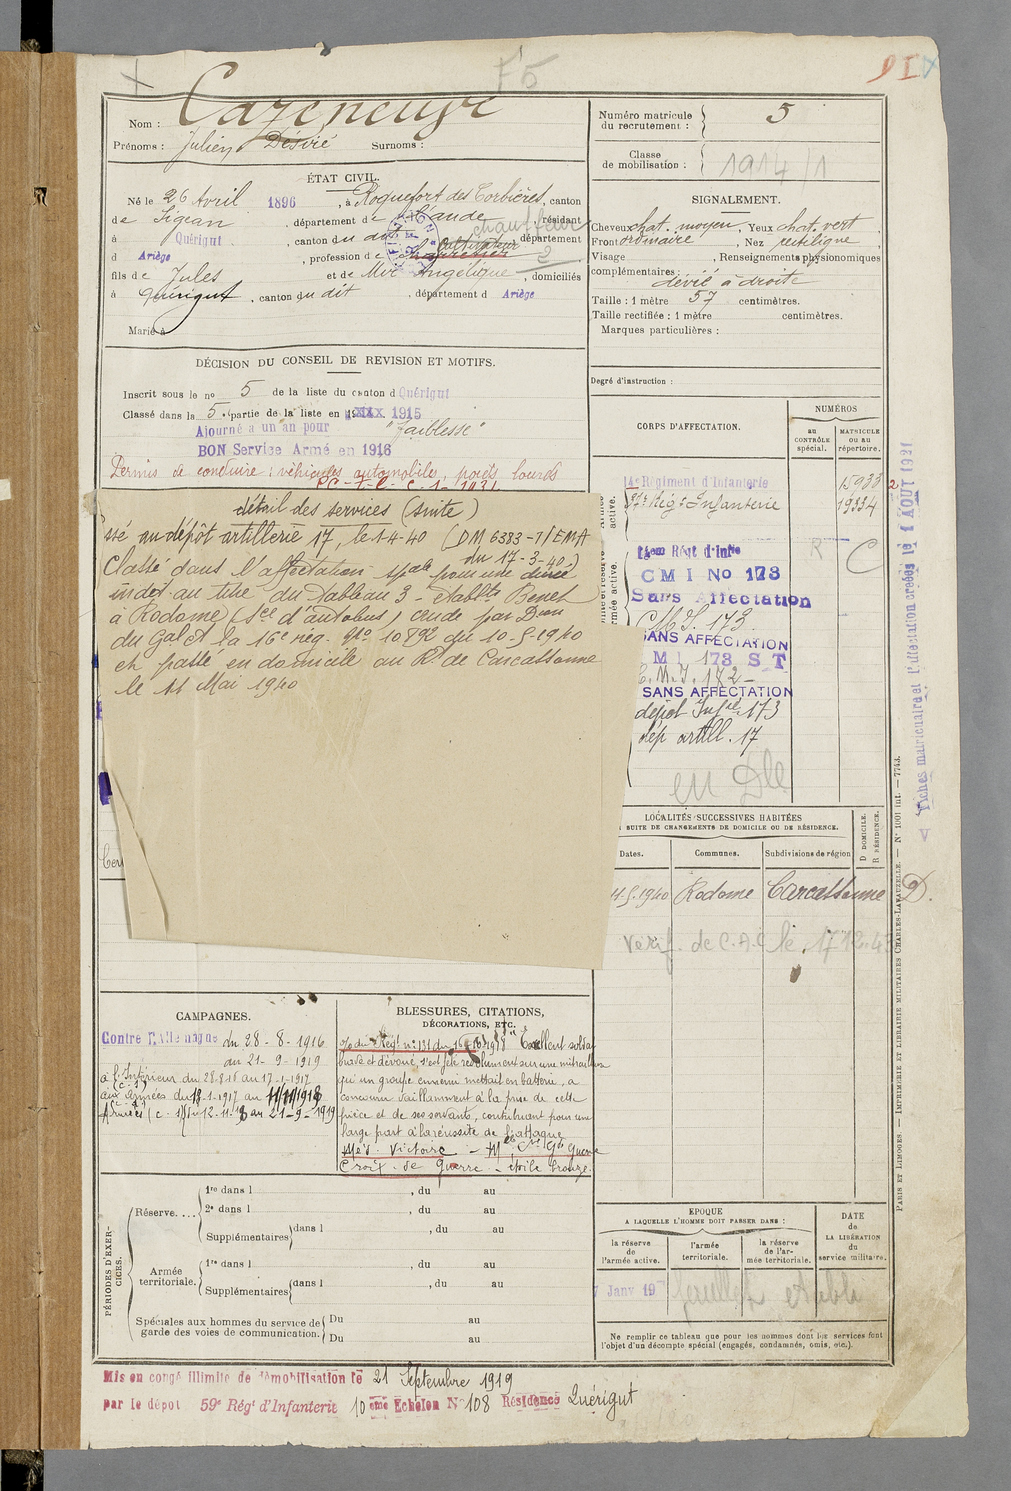 F5
Nom : Cazeneuve
Prénoms : Julien Désiré Surnoms :
Numéro matricule du recrutement : 5
Classe de mobilisation : 1914/1
ÉTAT CIVIL.
Né le 26 Avril 1896, à Roquefort des Corbières, canton
de Sigean, département de l'Aude, résidant
à Quérigut, canton du dit, département
d Ariège, profession de Cultivateur
chauffeur
2
fils de Jules et de Mir Angélique, domiciliés
à Quérigut, canton du dit, département d Ariège
Marié à
SIGNALEMENT.
Cheveux chat. moyen, Yeux chat. vert,
Front ordinaire, Nez rectiligne,
Visage , Renseignements physionomiques
complémentaires :
dévié à droite
Taille : 1 mètre 57 centimètres.
Taille rectifiée : 1 mètre centimètres.
Marques particulières :
Degré d'instruction :
DÉCISION DU CONSEIL DE REVISION ET MOTIFS.
Inscrit sous le no 5 de la liste du canton d Quérigut
Classé dans la 5e partie de la liste en 1915
Ajourné a un an pour "faiblesse"
BON Service Armé en 1916
Permis de conduire : véhicules automobiles, poids lourds
détail des services (suite)
au dépôt artillerie 17, le 1-4-40 (DM 6383-1/EMA
du 17-3-40)
Classé dans l'affectation spale pour une durée
indét. au titre du Tableau 3 - établts Benet
à Rodome (sce d'autobus) crude par Don
du Gal Ct la 16e rég. No 10892 du 10-5-1940
et passé en domicile au R. de Carcassonne
le 11 Mai 1940
CORPS D'AFFECTATION.
NUMÉROS
au CONTRÔLE spécial.
MATRICULE ou au répertoire.
14e Régiment d'Infanterie 15933
Régt Infanterie 19334
14eme Régt d'Infie R
CMI No 173 C
Sans Affectation
C.M.I. 173
SANS AFFECTATION
M I 173 S T
C.M.I. 172 -
SANS AFFECTATION
dépôt Infie 173
dép artill. 17
en Dle
LOCALITÉS SUCCESSIVES HABITÉES
SUITE DE CHANGEMENTS DE DOMICILE OU DE RÉSIDENCE.
Dates. Communes. Subdivisions de région D DOMICILE. R RÉSIDENCE.
11-5-1940 Rodome Carcassonne D.
Vérif. de C.A.C le 17 12.43
CAMPAGNES.
Contre l'Allemagne du 28-8-1916
au 21-9-1919
à l'Intérieur du 28.8.16 au 17-1-1917
aux Armées du 18-1-1917 au 11/11/1918
Armées du 12-11-18 au 21-9-1919
BLESSURES, CITATIONS,
DÉCORATIONS, ETC.
O/ du Régt n° 131 du 16-10-1918 "Excellent soldat
brave et dévoué, s'est jeté résolument sur une mitrailleuse
qu'un groupe ennemi mettait en batterie, a
concouru vaillamment à la prise de cette
pièce et de ses servants, contribuant pour une
large part à la réussite de l'attaque
Med. Victoire - Mlle Cve Gde Guerre
Croix de Guerre - étoile bronze.
PÉRIODES D'EXERCICES.
Réserve....
1re dans l , du au
2e dans l , du au
Supplémentaires dans l , du au
Armée territoriale.
1re dans l , du au
Supplémentaires dans l , du au
Spéciales aux hommes du service de garde des voies de communication.
Du au
Du au
EPOQUE
A LAQUELLE L'HOMME DOIT PASSER DANS :
la réserve de l'armée active.
l'armée territoriale.
la réserve de l'armée territoriale.
DATE de LA LIBÉRATION du service militaire.
Janv 19
Ne remplir ce tableau que pour les hommes dont les services font
l'objet d'un décompte spécial (engagés, condamnés, omis, etc.).
Mis en congé illimité de démobilisation le 21 Septembre 1919
par le dépôt 59e Régt d'Infanterie 10eme Echelon No 108 Résidence Quérigut
PARIS ET LIMOGES. — IMPRIMERIE ET LIBRAIRIE MILITAIRES CHARLES-LAVAUZELLE. — N° 1001 int. — 7743.
Fiches matriculaire et d'affectation créées le 1 AOUT 1921